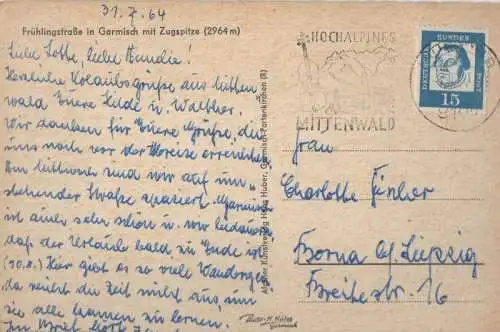 31.7.64
Frühlingstraße in Garmisch mit Zugspitze (2964 m)
Liebe Lotte, liebe Annelie!
Herzliche Urlaubsgrüße aus Mitten-
wald Euere Hilde u. Walther.
Wir danken für Euere Grüße, die
uns noch vor der Abreise erreichten.
Am Mittwoch sind wir auf um-
stehender Straße spaziert. Garmisch
ist auch sehr schön u. wir bedauern
daß der Urlaub bald zu Ende ist
(10.8.) Hier gibt es so viele Wanderwege
da reicht die Zeit nicht aus, um
sie alle kennen zu lernen.
HOCHALPINES
MITTENWALD
DEUTSCHE
BUNDES
POST
15
Frau
Charlotte
Borna b/ Leipzig
Breite str. 16
Huber, Garmisch-Partenkirchen (R)
Photo-H. Huber
Garmisch